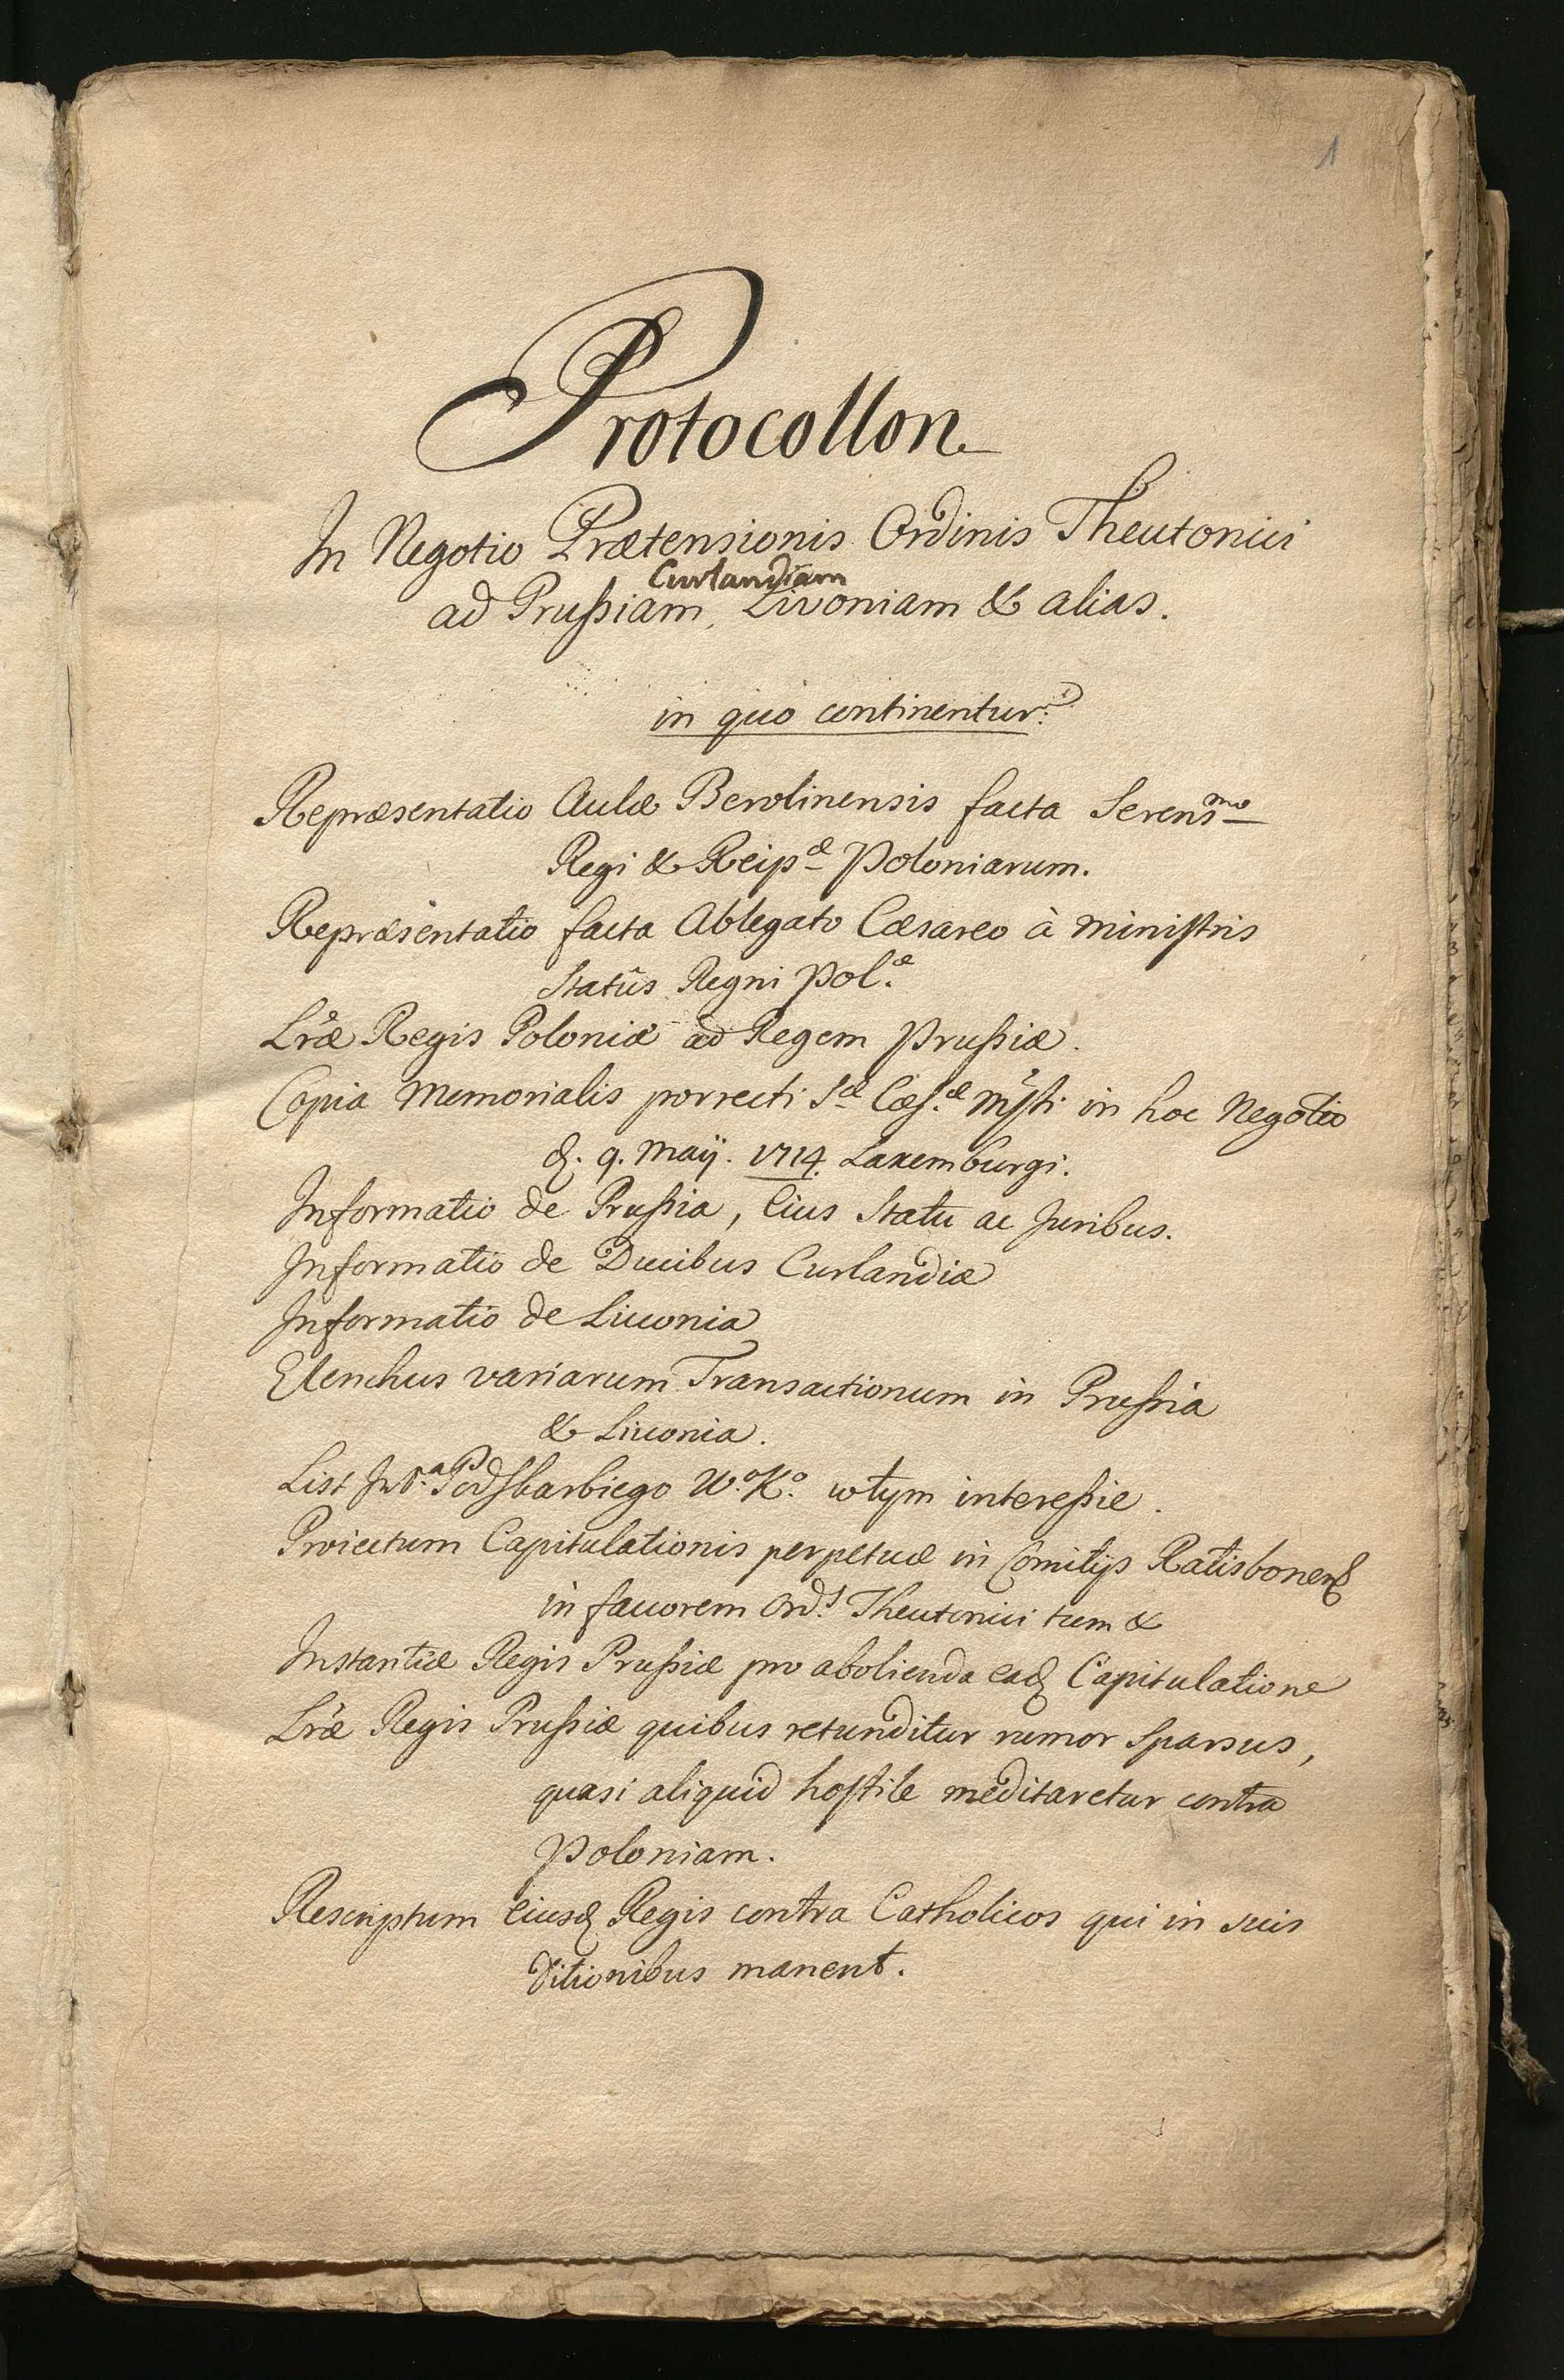 1
Protocollon
In Negotio Prætensionis Ordinis Theutonici
Curlandiam
ad Prußiam, Livoniam & alias.
in quo continentur:
Repræsentatio Aulæ Berolinensis facta Serensmo
Regi & Reipæ Poloniarum.
Repræsentatio facta Ablegato Cæsareo à Ministris
Statûs Regni Pol.æ
Lræ Regis Poloniæ ad Regem Prußiæ.
Copia Memorialis porrecti Sæ Cæs.æ Mtti in hoc Negotio
d. 9. Maij. 1714. Laxemburgi.
Informatio de Prußia, Eius Statu ac Juribus.
Informatio de Ducibus Curlandiæ
Informatio de Liuonia
Elenchus variarum Transactionum in Prußia
& Liuonia.
List Podskarbiego W.oK.o wtym intereßie.
Proiectum Capitulationis perpetuæ in Comitijs Ratisbonens
in fauorem Ord.s Theutonici tum &
Instantiæ Regis Prußiæ pro abolienda ead Capitulatione
Lræ Regis Prußiæ quibus retunditur rumor sparsus,
quasi aliquid hostile meditaretur contra
Poloniam.
Rescriptum eiusd Regis contra Catholicos qui in suis
ditionibus manent.